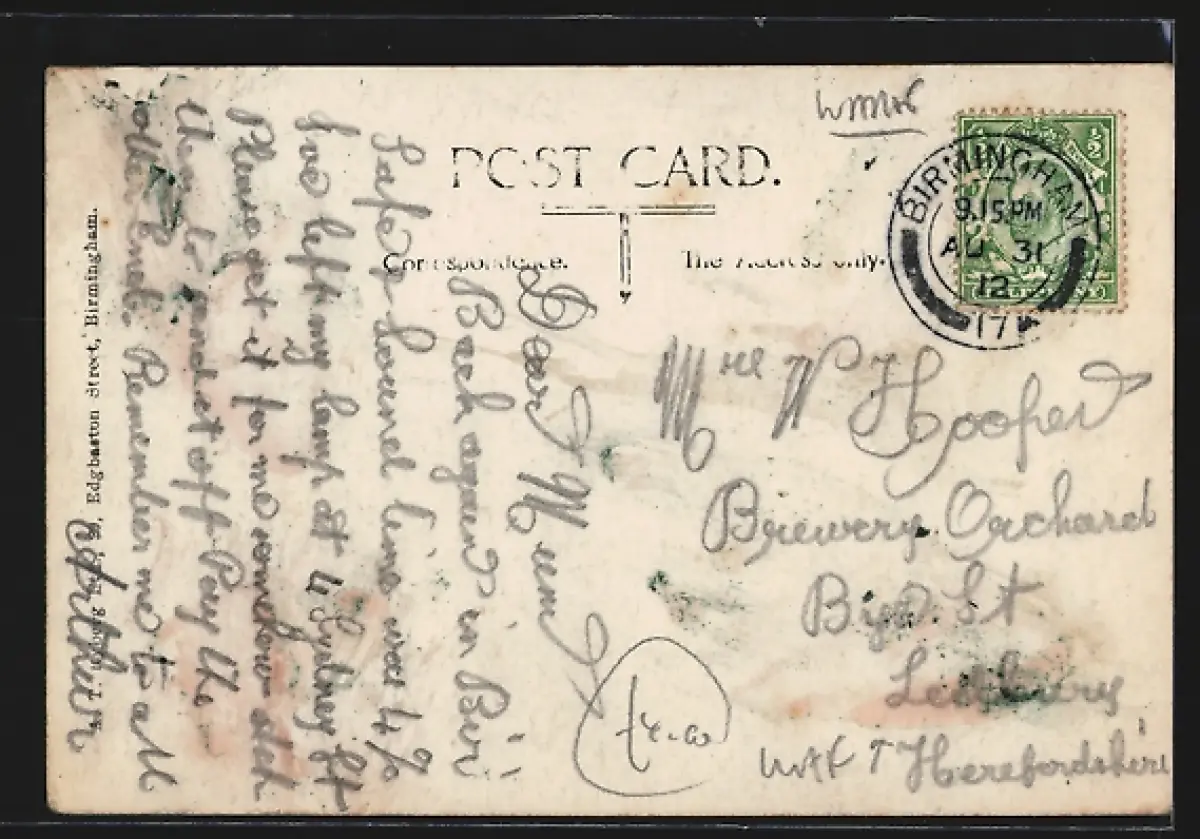 POST CARD.
Correspondence.
The Address only.
BIRMINGHAM
9.15 PM
AU 31
12
17
½
Mrs W Hooper
Brewery Orchard
Bye St
Ledbury
Herefordshire
£4.00
Dear Mum I
Back again in Bir
Safe &
line was 4/6
left my lamp at 4 Sydney St
Please get it for me somehow
them to send it off Pay the
other end. Remember me to all
Arthur
Edgbaston Street, Birmingham.